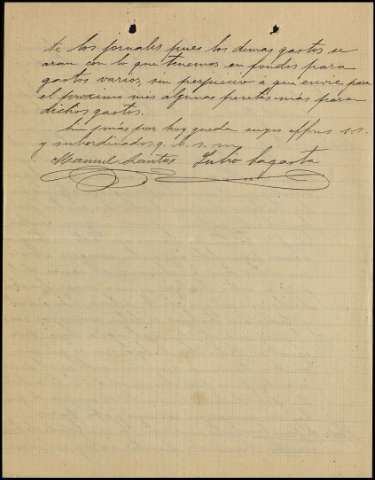 te los jornales pues los demas gastos se
aran con lo que tenemos en fondos para
gastos varios, sin perjuicio á que envie para
el proximo mes algunas pesetas mas para
dichos gastos.
Sin más por hoy quedan suyos affmos s.s.
y subordinados q. b. s. m.
Manuel Santos Julio Sagasta